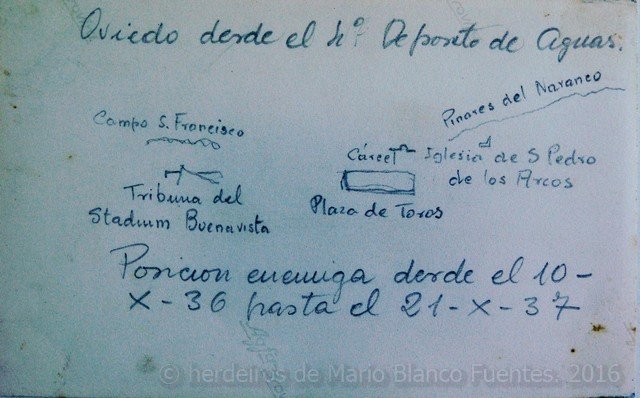 Oviedo desde el 4º Deposito de Aguas.
Pinares del Naranco
Campo S. Francisco
Cárcel Iglesia de S Pedro
de los Arcos
Tribuna del
Stadium Buenavista
Plaza de Toros
Posicion enemiga desde el 10-
X-36 hasta el 21-X-37
© herdeiros de Mario Blanco Fuentes. 2016